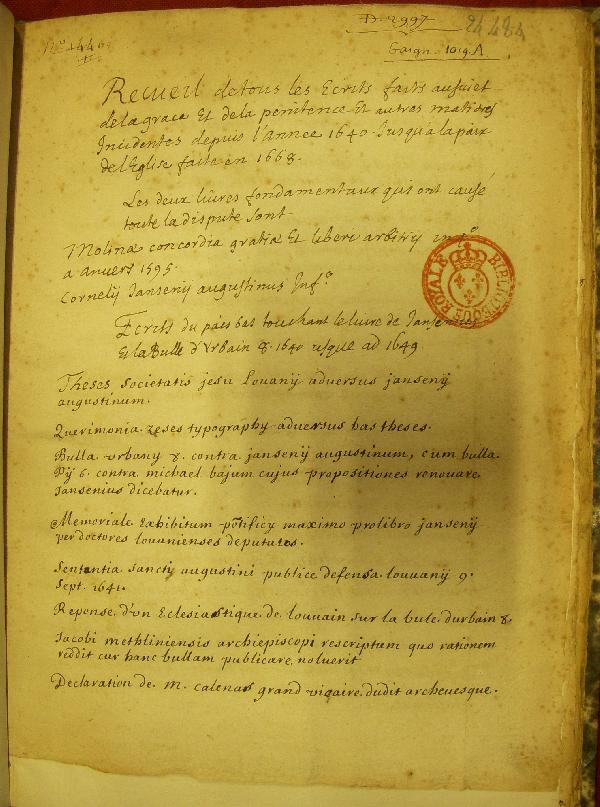 D. 2997
24484
Gaign. 1019. A
Recueil detous les Ecrits faits ausuiet
delagrace Et dela penitence Et autres matieres
Incidentes depuis l'annee 1640. Jusqu'a la paix
del'Eglise faite en 1668.
Les deux liures fondamentaux qui ont causé
toute la dispute sont.
Molinæ concordia gratiæ Et liberi arbitrij in f.º
a anuers 1595.
Cornelij Jansenij augustinus Inf.º
BIBLIOTHEQUE ROYALE
Ecrits du païs bas touchant le liure de Jansenius
Et la Bulle d'Vrbain 8. 1640 usque ad 1649
Theses societatis jesu Louanij aduersus jansenij
augustinum.
Querimonia zeses typography aduersus has theses.
Bulla vrbany 8. contra jansenij augustinum, cum bulla
Pij 5. contra michael bajum cujus propositiones renouare
Jansenius dicebatur.
Memoriale Exhibitum põtificy maximo prolibro jansenij
per doctores louanienses deputatos.
Sententia sancty augustini publice defensa louanij 9.
Sept. 1641.
Reponse d'vn Eclesiastique de louuain sur la bule durbain 8.
Jacobi methliniensis archiepiscopi rescriptum quo rationem
reddit cur hanc bullam publicare noluerit
Declaration de m. calenas grand vicaire dudit archeuesque.